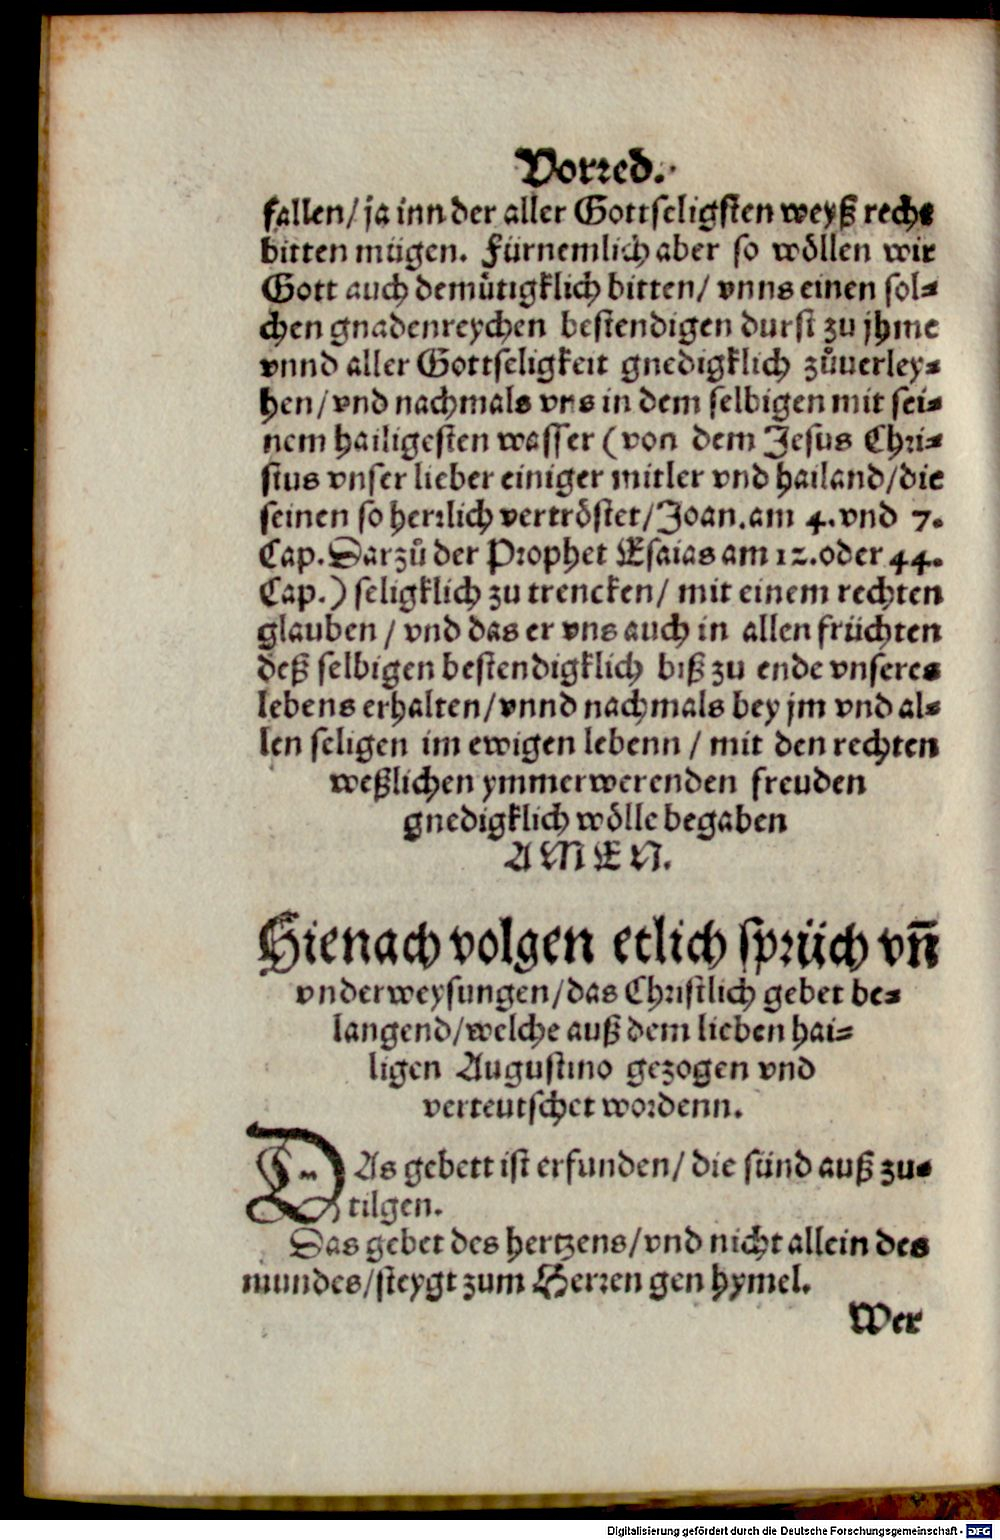 Vorred.
fallen/ ja inn der aller Gottseligsten weyß recht
bitten mügen. Fürnemlich aber so wöllen wir
Gott auch demuͤtigklich bitten/ vnns einen sol-
chen gnadenreychen bestendigen durst zu jhme
vnnd aller Gottseligkeit gnedigklich zůuerley-
hen/ vnd nachmals vns in dem selbigen mit sei-
nem hailigesten wasser (von dem Jesus Chri-
stus vnser lieber einiger mitler vnd hailand/ die
seinen so herrlich vertröstet/ Joan. am 4. vnd 7.
Cap. Darzů der Prophet Esaias am 12. oder 44.
Cap.) seligklich zu trencken/ mit einem rechten
glauben / vnd das er vns auch in allen früchten
deß selbigen bestendigklich biß zu ende vnseres
lebens erhalten/ vnnd nachmals bey jm vnd al-
len seligen im ewigen lebenn / mit den rechten
weßlichen ymmerwerenden freuden
gnedigklich wölle begaben
AMEN.
Hienach volgen etlich sprüch vn̄
vnderweysungen/ das Christlich gebet be-
langend/ welche auß dem lieben hai-
ligen Augustino gezogen vnd
verteutschet wordenn.
DAs gebett ist erfunden/ die sünd auß zu-
tilgen.
Das gebet des hertzens/ vnd nicht allein des
mundes/ steygt zum Herren gen hymel.
Wer
Digitalisierung gefördert durch die Deutsche Forschungsgemeinschaft - DFG